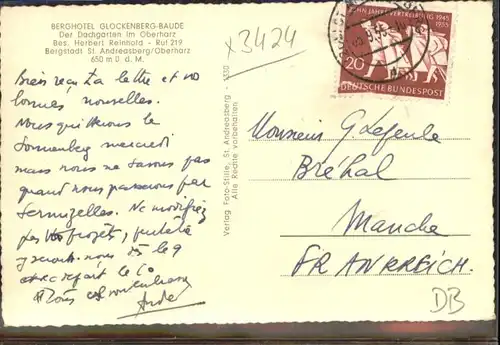 BERGHOTEL GLOCKENBERG-BAUDE
Der Dachgarten im Oberharz
Bes. Herbert Reinhold - Ruf 219
Bergstadt St. Andreasberg/Oberharz
650 m ü. d. M.
x3424
ZEHN JAHRE VERTREIBUNG 1945
1955
20
DEUTSCHE BUNDESPOST
Bien reçu ta lettre et
bonnes nouvelles.
Nous quitterons le
Sonnenberg mercredi
mais nous ne savons pas
quand nous passerons par
Sermizelles. Ne modifiez
pas projets, peut-être
y serons-nous le 9
le 10
Verlag Foto-Stille, St. Andreasberg - 330
Alle Rechte vorbehalten
Monsieur G. Lefeuvre
Bréhal
Manche
FRANKREICH.
DB